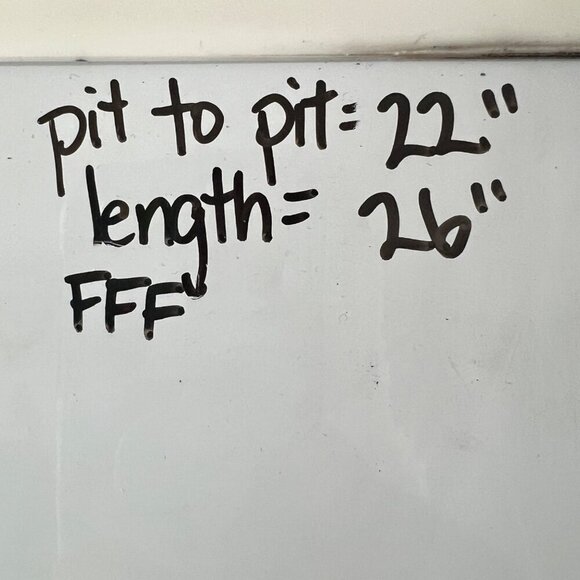 pit to pit = 22"
length = 26"
FFF